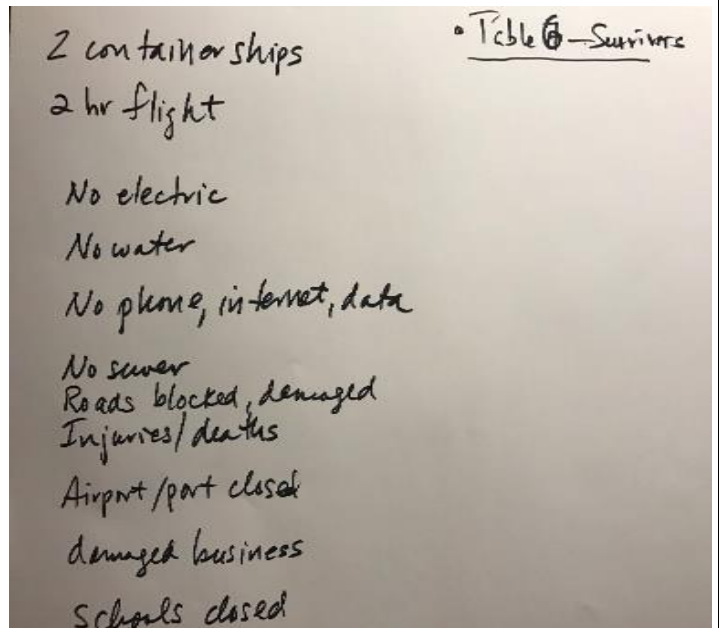 • Table 6 – Survivors
2 container ships
2 hr flight
No electric
No water
No phone, internet, data
No sewer
Roads blocked, damaged
Injuries/deaths
Airport/port closed
damaged business
Schools closed